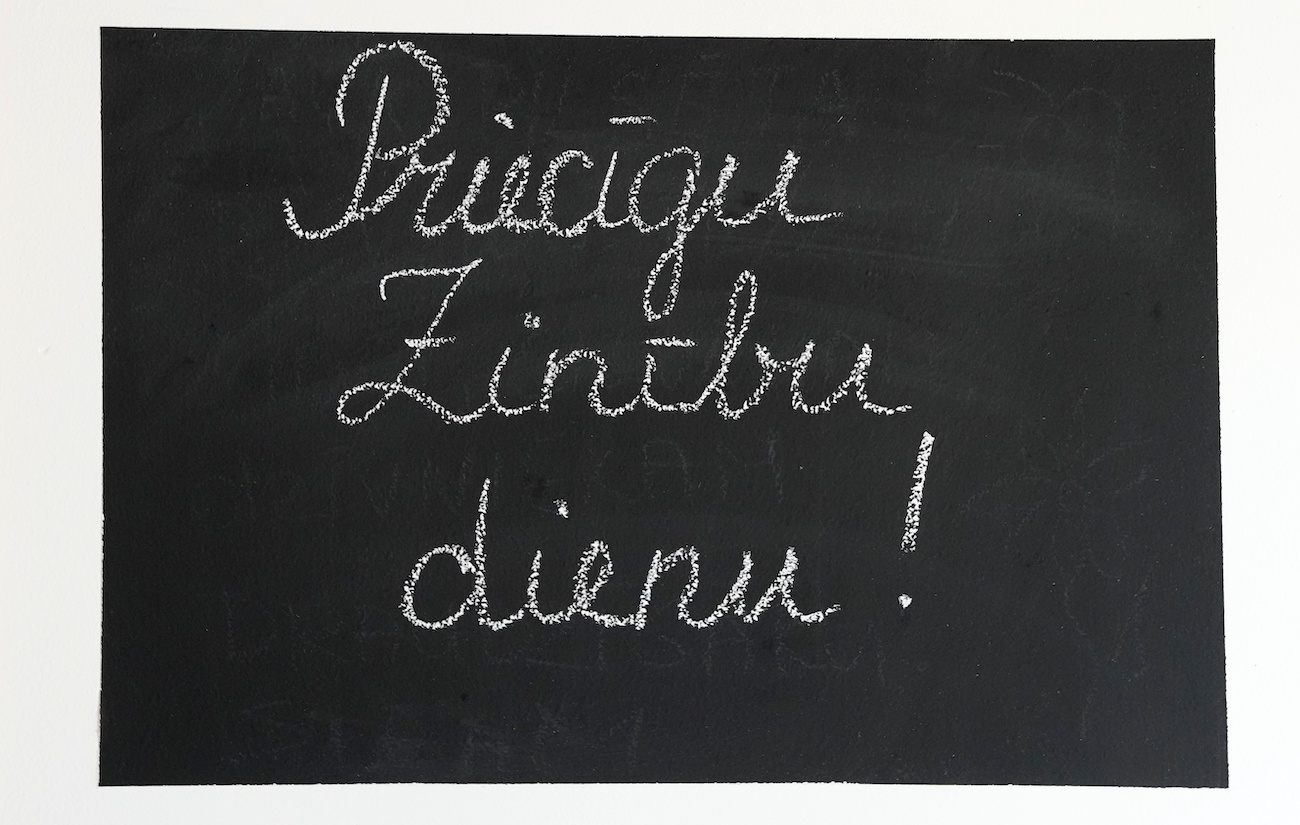 Priecīgu
Zinību
dienu!